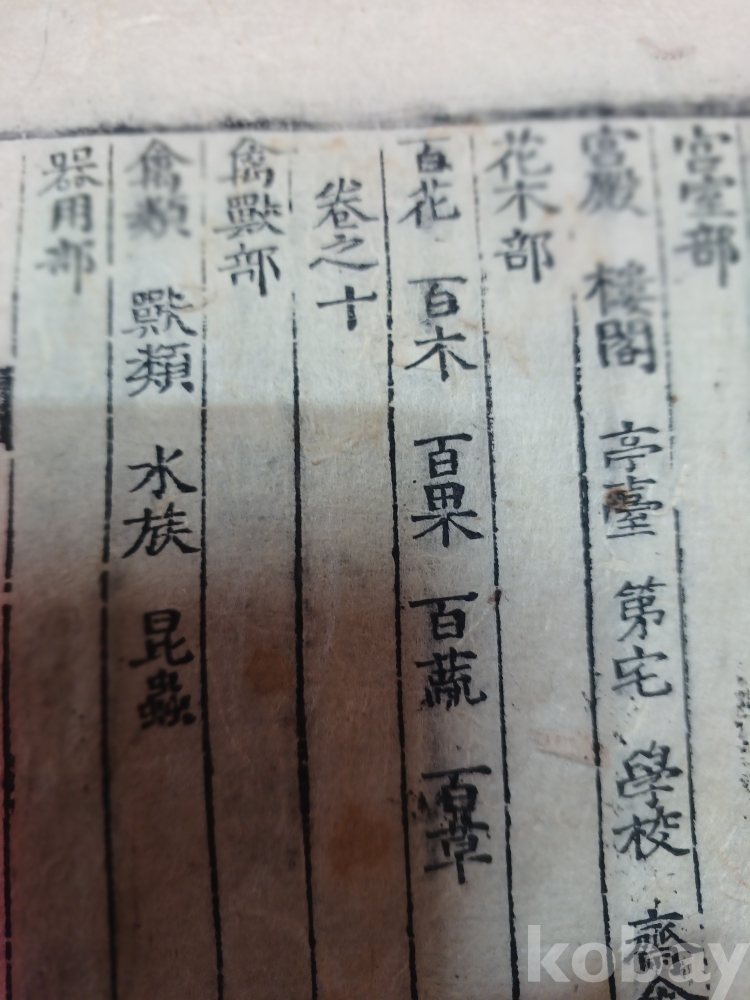 宮室部
宮殿 樓閣 亭臺 第宅 學校 齋舍
花木部
百花 百木 百果 百蔬 百草
卷之十
禽獸部
禽類 獸類 水族 昆蟲
器用部
kobay